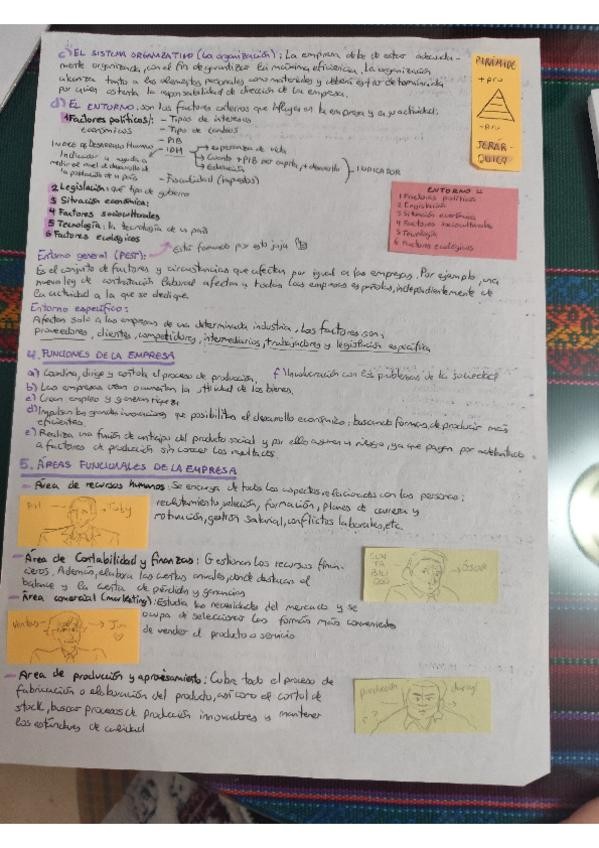 c) EL SISTEMA ORGANIZATIVO (La organización): La empresa debe de estar adecuada-
mente organizada, con el fin de garantizar la máxima eficiencia. La organización
alcanza tanto a los elementos personales como materiales y deberá estar determinada
por quien ostenta la responsabilidad de dirección de la empresa.
PIRÁMIDE
+ pru
- pru
JERÁR-
QUICO
d) EL ENTORNO: son los factores externos que influyen en la empresa y en su actividad.
1 Factores políticos/: - Tipos de interés
económicos - Tipo de cambio
- PIB
Índice de Desarrollo Humano - IDH → esperanza de vida
Indicador q ayuda a → Cuanto + PIB per capita, + desarrollo INDICADOR
medir el nivel de desarrollo de → Educación
la población de un país
- Fiscalidad (impuestos)
2 Legislación: qué tipo de gobierno
3 Situación económica:
4 Factores socioculturales
5 Tecnología: la tecnología de un país
6 Factores ecológicos
ENTORNO
1 Factores políticos
2 Legislación
3 Situación económica
4 Factores socioculturales
5 Tecnología
6 Factores ecológicos
Entorno general (PEST): Está formado por esto jaja
Es el conjunto de factores y circunstancias que afectan por igual a las empresas. Por ejemplo, una
nueva ley de contratación laboral afectan a todas las empresas españolas, independientemente de
la actividad a la que se dedique.
Entorno específico:
Afectan solo a las empresas de una determinada industria. Los factores son:
proveedores, clientes, competidores, intermediarios, trabajadores y legislación específica
4. FUNCIONES DE LA EMPRESA
a) Coordina, dirige y controla el proceso de producción. f) Involucración con los problemas de la sociedad
b) Las empresas crean o aumentan la utilidad de los bienes.
c) Crean empleo y generan riqueza
d) Impulsan las grandes innovaciones que posibilitan el desarrollo económico: buscando formas de producir más
eficientes.
e) Realiza una función de anticipo del producto social y por ello asumen un riesgo, ya que pagan por adelantado
a factores de producción sin conocer los resultados.
5. ÁREAS FUNCIONALES DE LA EMPRESA
- Área de recursos humanos: Se encarga de todos los aspectos relacionados con las personas:
reclutamiento, selección, formación, planes de carrera y
motivación, gestión salarial, conflictos laborales, etc.
Toby
- Área de Contabilidad y finanzas: Gestionan los recursos finan-
cieros. Además, elabora las cuentas anuales, donde destacan el
balance y la cuenta de pérdidas y ganancias
CON
TA
BILI
DAD
OSCAR
- Área comercial (marketing): Estudia las necesidades del mercado y se
ocupa de seleccionar las formas más convenientes
de vender el producto o servicio
Ventas
Jim
- Área de producción y aprovisionamiento: Cubre todo el proceso de
fabricación o elaboración del producto, así como el control de
stock, buscar procesos de producción innovadores y mantener
los estándares de calidad
producción